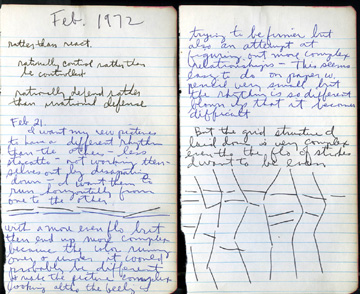 Feb. 1972
rather than react.
rationally control rather than
be controlled
rationally defend rather
than irrational defense
Feb 21.
I want my new pictures
to have a different rhythm
than the others - not
stacatto - not working them-
selves out by dissapating
down - I want them to
run horizontally from
one to the other.
with a more even flo but
then end up more complex
because the color running
over & under it could
probably be different
& make the picture complex
looking after the feeling
trying to be firmer but
also an attempt at
figuring out more complex
relationships - This seems
easy to do on paper w.
pencil very small but
the rhythm is so different
blown up that it becomes
difficult
But the grid structure I
laid down is very complex
even tho the flo of strides
I want to be even